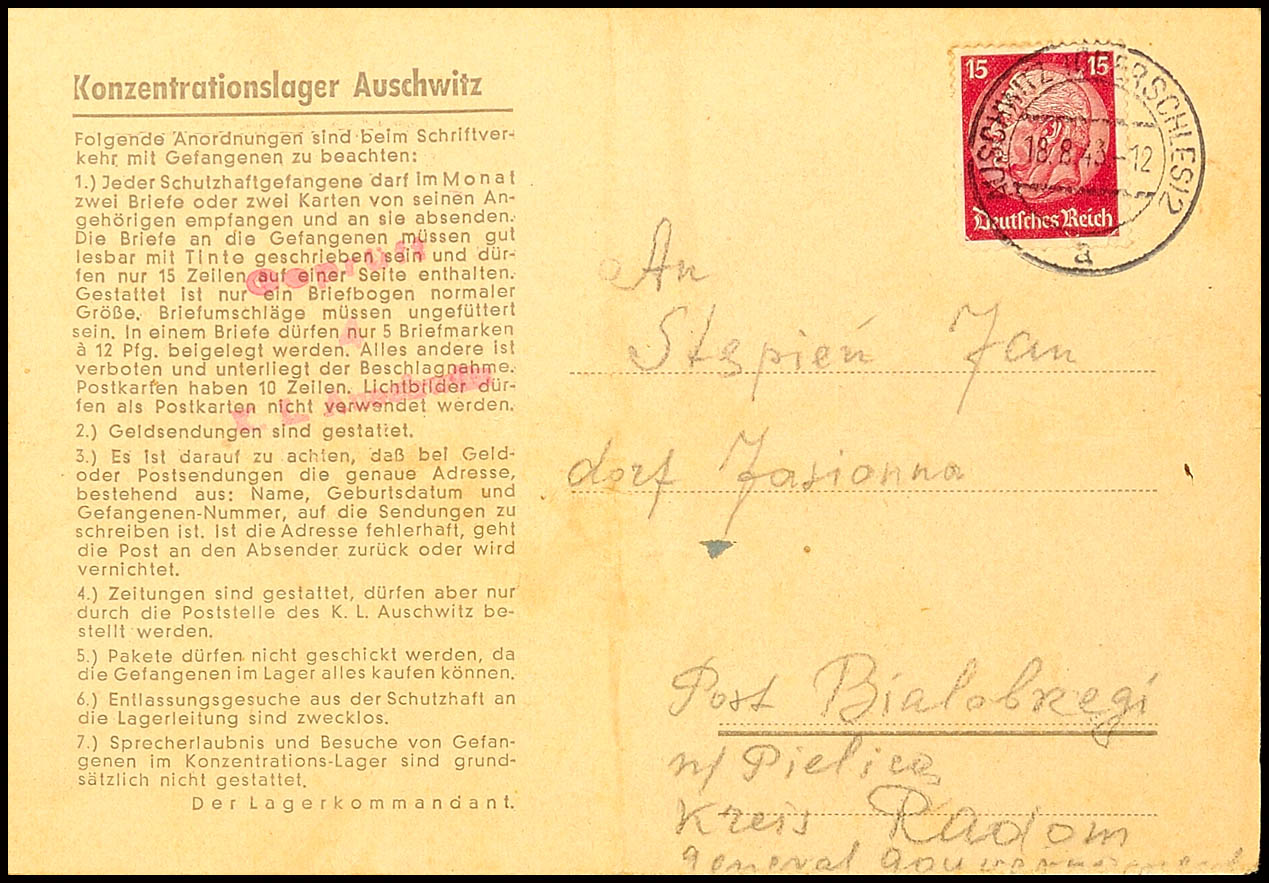 Konzentrationslager Auschwitz
Folgende Anordnungen sind beim Schriftver-
kehr mit Gefangenen zu beachten:
1.) Jeder Schutzhaftgefangene darf im Monat
zwei Briefe oder zwei Karten von seinen An-
gehörigen empfangen und an sie absenden.
Die Briefe an die Gefangenen müssen gut
lesbar mit Tinte geschrieben sein und dür-
fen nur 15 Zeilen auf einer Seite enthalten.
Gestattet ist nur ein Briefbogen normaler
Größe. Briefumschläge müssen ungefüttert
sein. In einem Briefe dürfen nur 5 Briefmarken
à 12 Pfg. beigelegt werden. Alles andere ist
verboten und unterliegt der Beschlagnahme.
Postkarten haben 10 Zeilen. Lichtbilder dür-
fen als Postkarten nicht verwendet werden.
2.) Geldsendungen sind gestattet.
3.) Es ist darauf zu achten, daß bei Geld-
oder Postsendungen die genaue Adresse,
bestehend aus: Name, Geburtsdatum und
Gefangenen-Nummer, auf die Sendungen zu
schreiben ist. Ist die Adresse fehlerhaft, geht
die Post an den Absender zurück oder wird
vernichtet.
4.) Zeitungen sind gestattet, dürfen aber nur
durch die Poststelle des K. L. Auschwitz be-
stellt werden.
5.) Pakete dürfen nicht geschickt werden, da
die Gefangenen im Lager alles kaufen können.
6.) Entlassungsgesuche aus der Schutzhaft an
die Lagerleitung sind zwecklos.
7.) Sprecherlaubnis und Besuche von Gefan-
genen im Konzentrations-Lager sind grund-
sätzlich nicht gestattet.
Der Lagerkommandant.
Geprüft
4
K. L. Auschwitz
15 15
Deutsches Reich
AUSCHWITZ (OBERSCHLES) 2
18.8.43-12
a
An
Stepień Jan
dorf Jasionna
Post Bialobrzegi
n/ Pielica
Kreis Radom
General Gouvernement